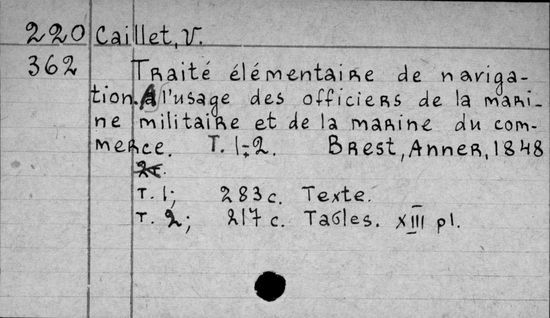 220 Caillet, V.
362 Traité élémentaire de naviga-
tion. A l'usage des officiers de la mari-
ne militaire et de la marine du com-
merce. T. 1-2. Brest, Anner, 1848
2t.
T. 1; 283 c. Texte.
T. 2; 217 c. Tables. XIII pl.